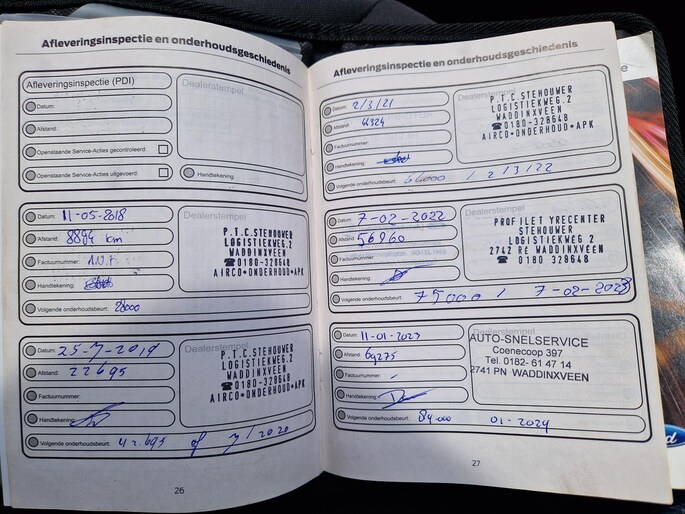 Afleveringsinspectie en onderhoudsgeschiedenis
Afleveringsinspectie (PDI)
Dealerstempel
Datum:
Afstand:
Openstaande Service-Acties gecontroleerd:
Openstaande Service-Acties uitgevoerd:
Handtekening:
Datum: 11-05-2018
Dealerstempel
Afstand: 8894 km
Factuurnummer:
Handtekening:
Volgende onderhoudsbeurt:
P.T.C.STEHOUWER
LOGISTIEKWEG.2
WADDINXVEEN
☎0180-328648
AIRCO•ONDERHOUD•APK
Datum: 25-7-2019
Dealerstempel
Afstand: 22695
Factuurnummer:
Handtekening:
Volgende onderhoudsbeurt: 42.695 of 7/2020
P.T.C.STEHOUWER
LOGISTIEKWEG.2
WADDINXVEEN
☎0180-328648
AIRCO•ONDERHOUD•APK
26
Afleveringsinspectie en onderhoudsgeschiedenis
Datum: 2/3/21
Dealerstempel
Afstand: 44324
Factuurnummer:
Handtekening:
Volgende onderhoudsbeurt: 64000 / 2/3/22
P.T.C.STEHOUWER
LOGISTIEKWEG.2
WADDINXVEEN
☎0180-328648
AIRCO•ONDERHOUD•APK
Datum: 7-02-2022
Dealerstempel
Afstand: 56960
Factuurnummer:
Handtekening:
Volgende onderhoudsbeurt: 75000 / 7-02-2023
PROFILE TYRECENTER
STEHOUWER
LOGISTIEKWEG 2
2742 RE WADDINXVEEN
☎ 0180 328648
Datum: 11-01-2023
Dealerstempel
Afstand: 69275
Factuurnummer:
Handtekening:
Volgende onderhoudsbeurt: 84000 01-2024
AUTO-SNELSERVICE
Coenecoop 397
Tel. 0182- 61 47 14
2741 PN WADDINXVEEN
27